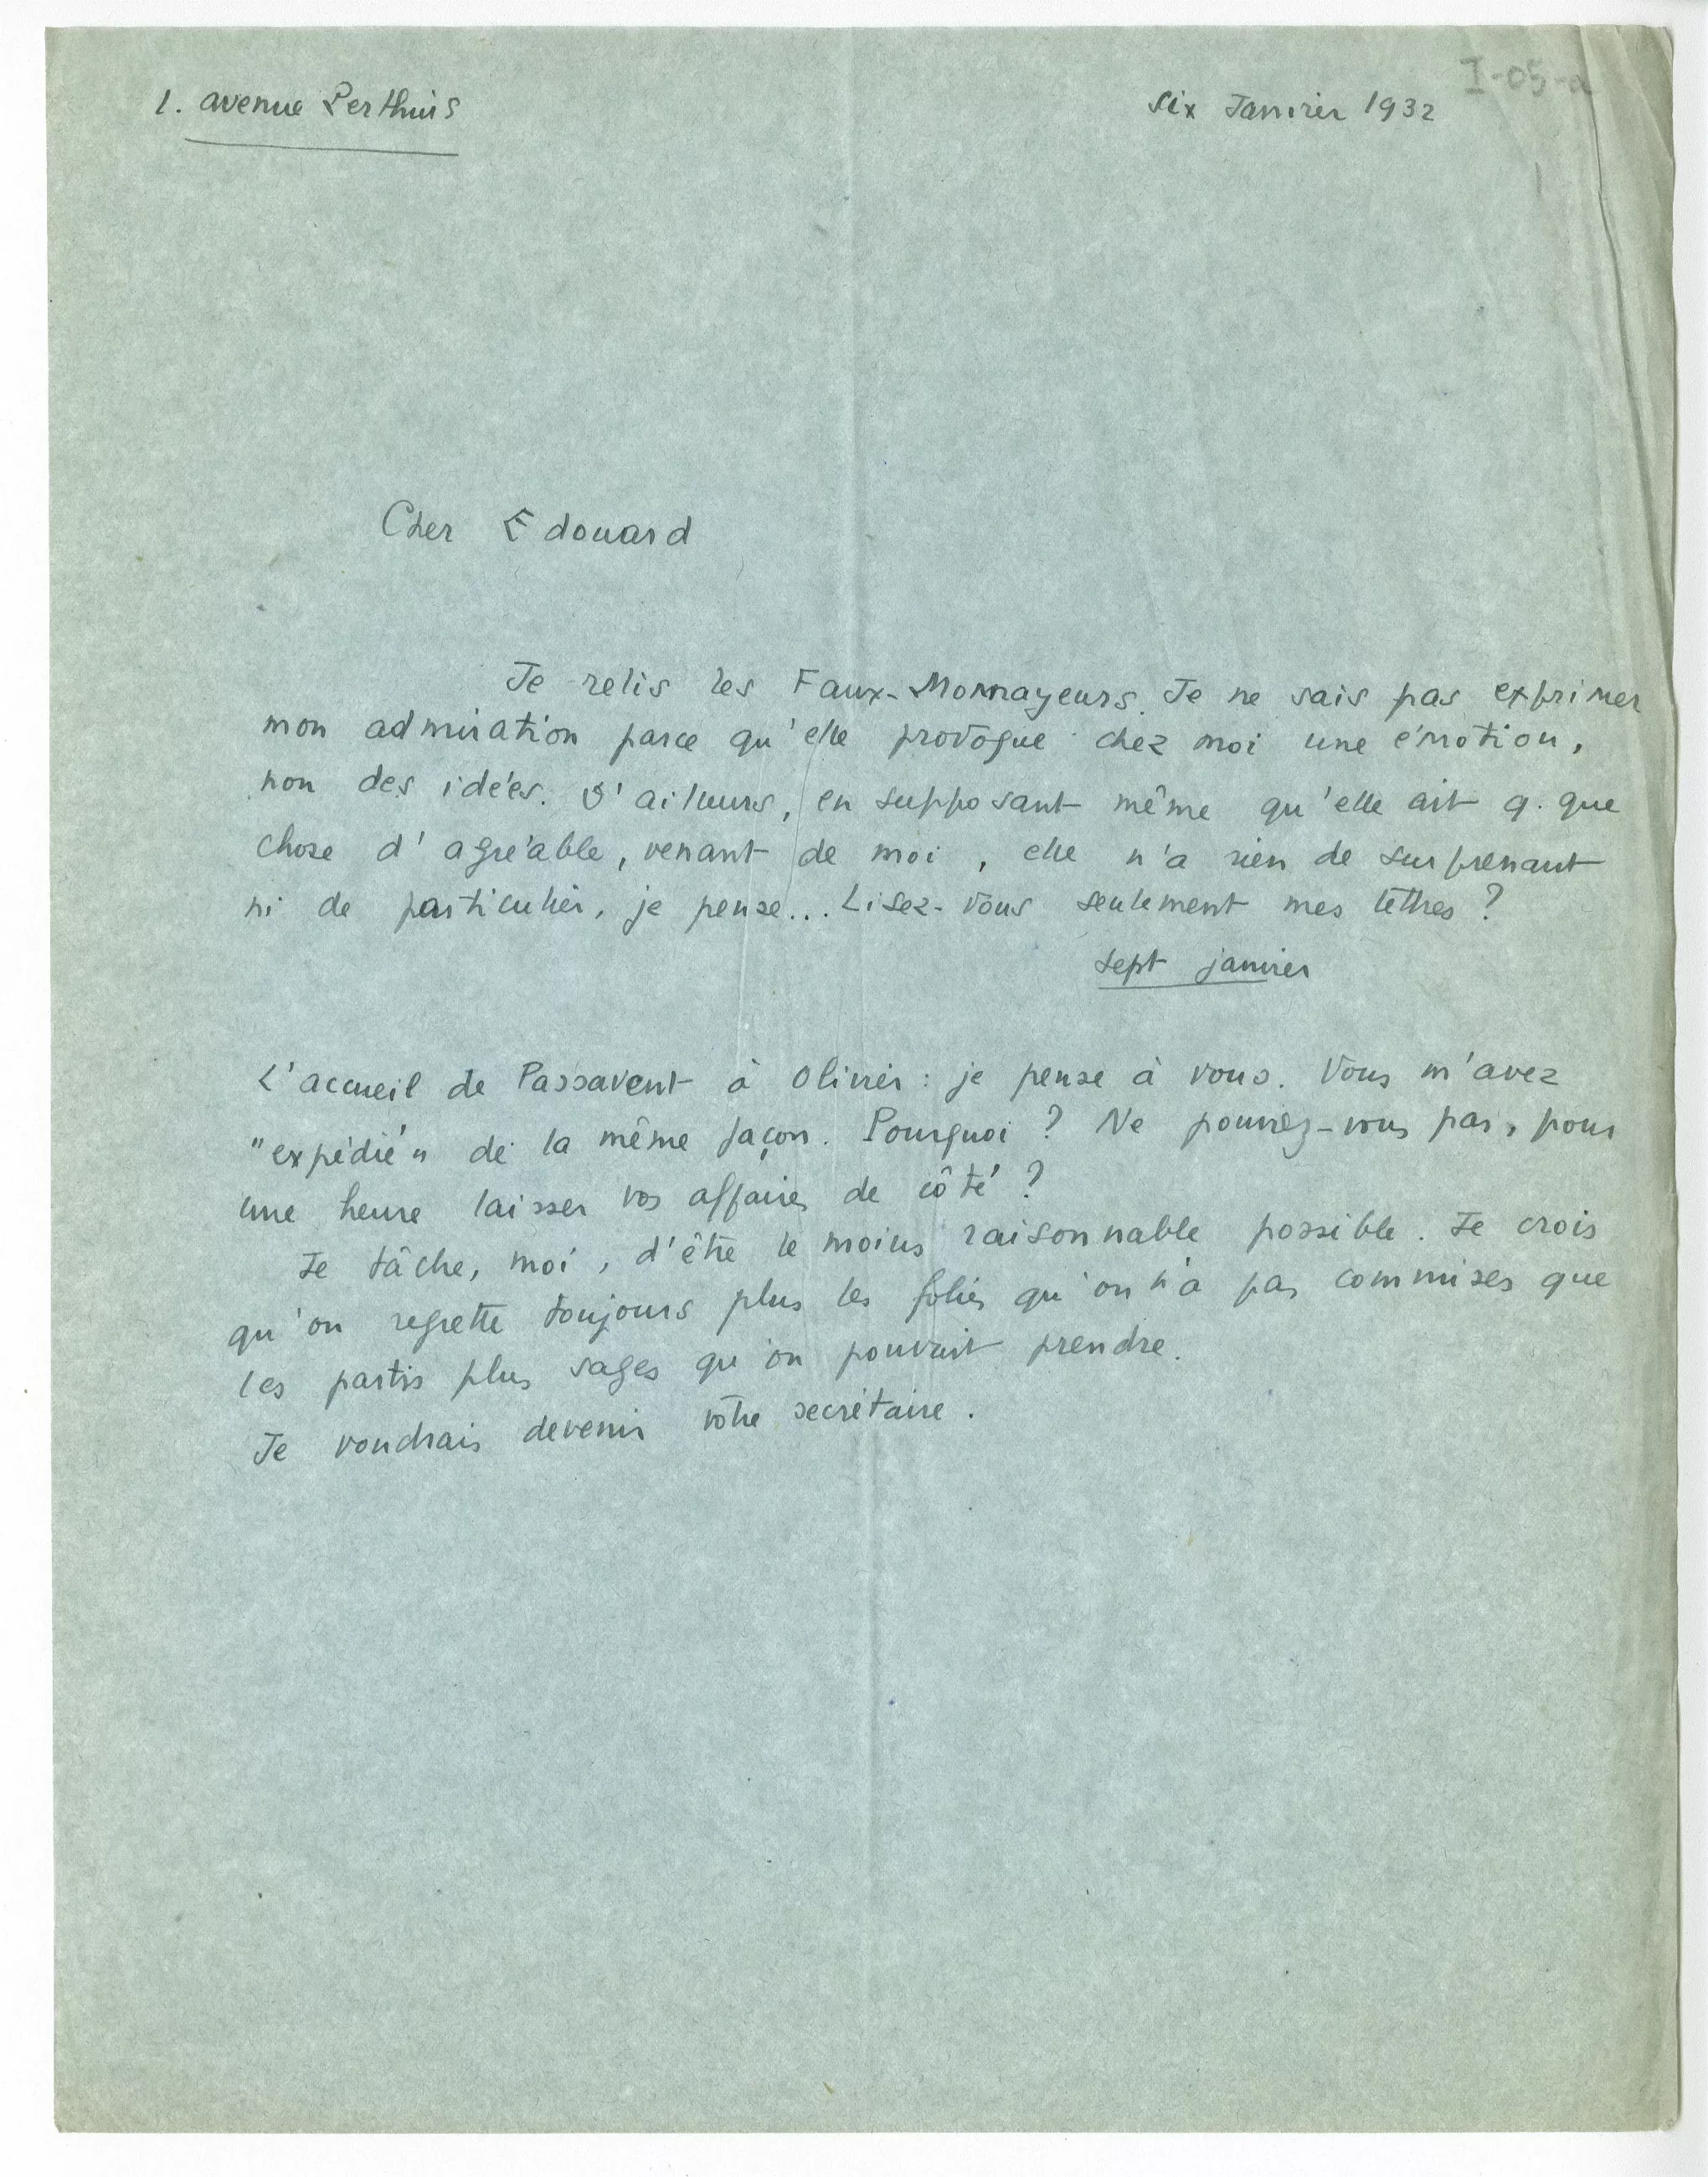 I-05-a
1. avenue Perthuis
six Janvier 1932
Cher Edouard
Je relis les Faux-Monnayeurs. Je ne sais pas exprimer
mon admiration parce qu'elle provoque chez moi une émotion,
non des idées. D'ailleurs, en supposant même qu'elle ait q. que
chose d'agréable, venant de moi, elle n'a rien de surprenant
ni de particulier, je pense... Lisez-vous seulement mes lettres ?
sept janvier
L'accueil de Passavent à Olivier : je pense à vous. Vous m'avez
"expédié" de la même façon. Pourquoi ? Ne pouviez-vous pas, pour
une heure laisser vos affaires de côté ?
Je tâche, moi, d'être le moins raisonnable possible. Je crois
qu'on regrette toujours plus les folies qu'on n'a pas commises que
les partis plus sages qu'on pouvait prendre.
Je voudrais devenir votre secrétaire.